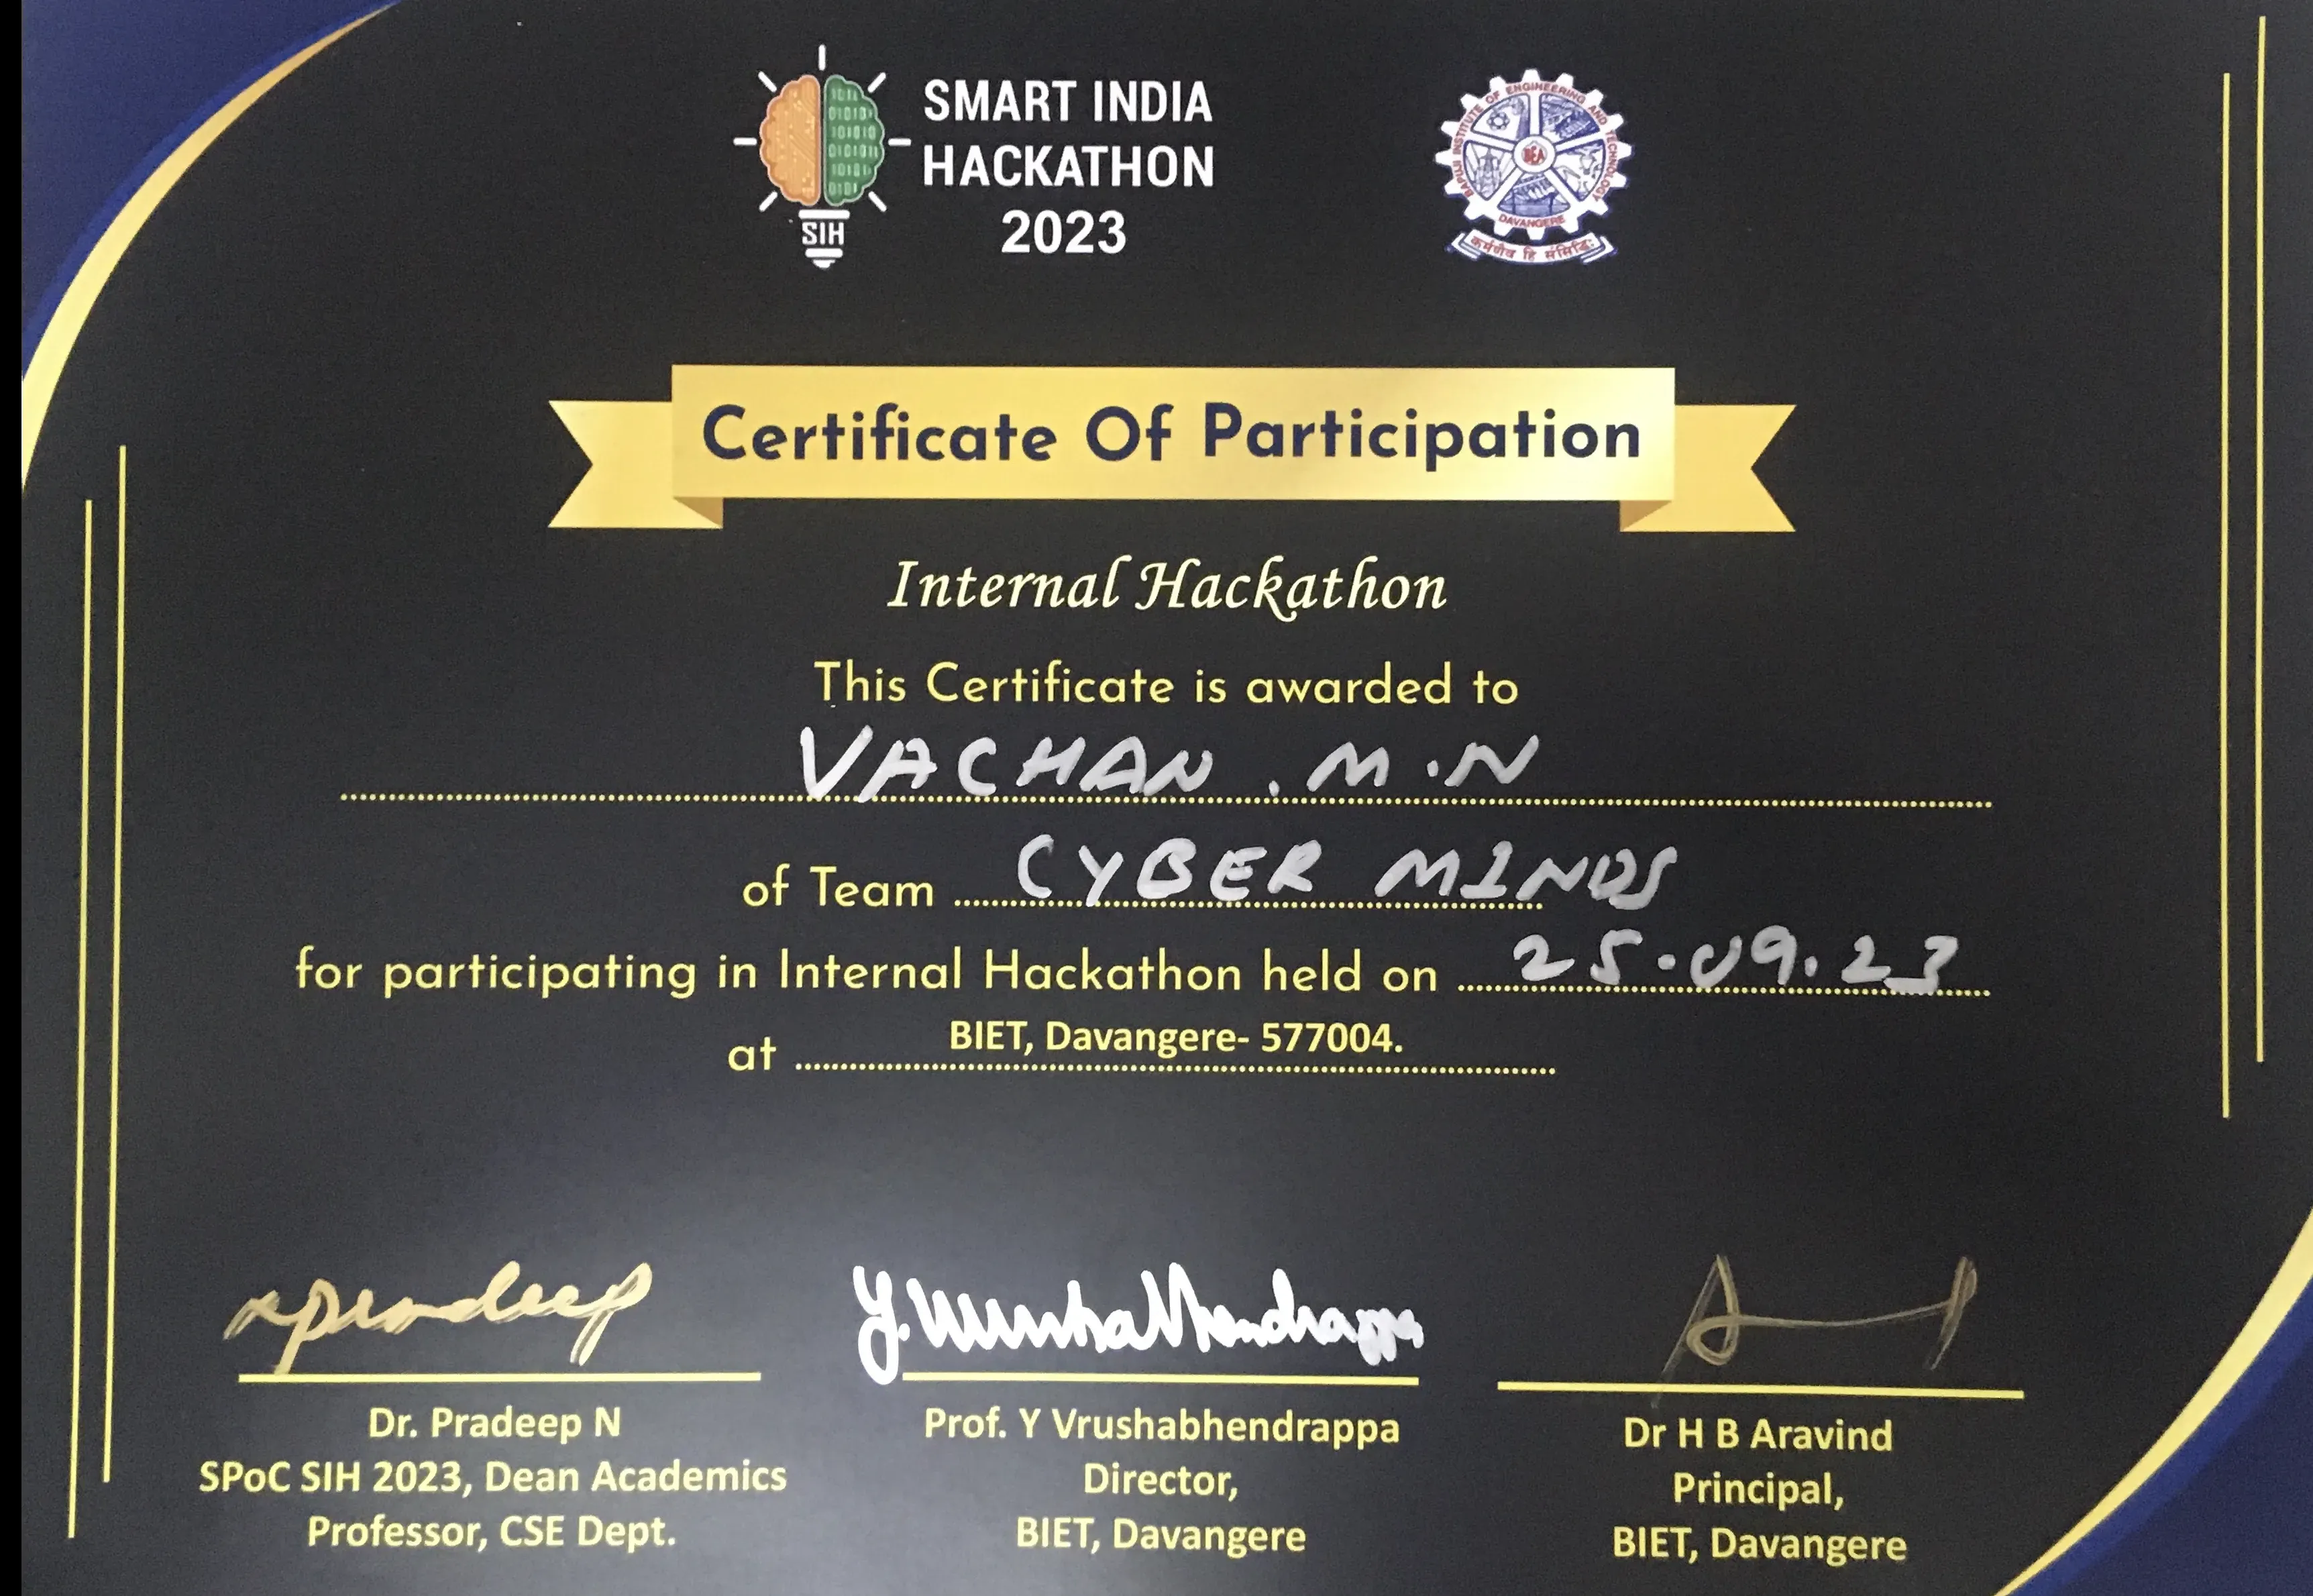 SMART INDIA
HACKATHON
2023
SIH
BAPUJI INSTITUTE OF ENGINEERING AND TECHNOLOGY
BEA
DAVANGERE
कर्मणैव हि संसिद्धिः
Certificate Of Participation
Internal Hackathon
This Certificate is awarded to
VACHAN . M . N
of Team CYBER MINDS
for participating in Internal Hackathon held on 25.09.23
at BIET, Davangere- 577004.
Y. Vrushabhendrappa
Dr. Pradeep N
SPoC SIH 2023, Dean Academics
Professor, CSE Dept.
Prof. Y Vrushabhendrappa
Director,
BIET, Davangere
Dr H B Aravind
Principal,
BIET, Davangere